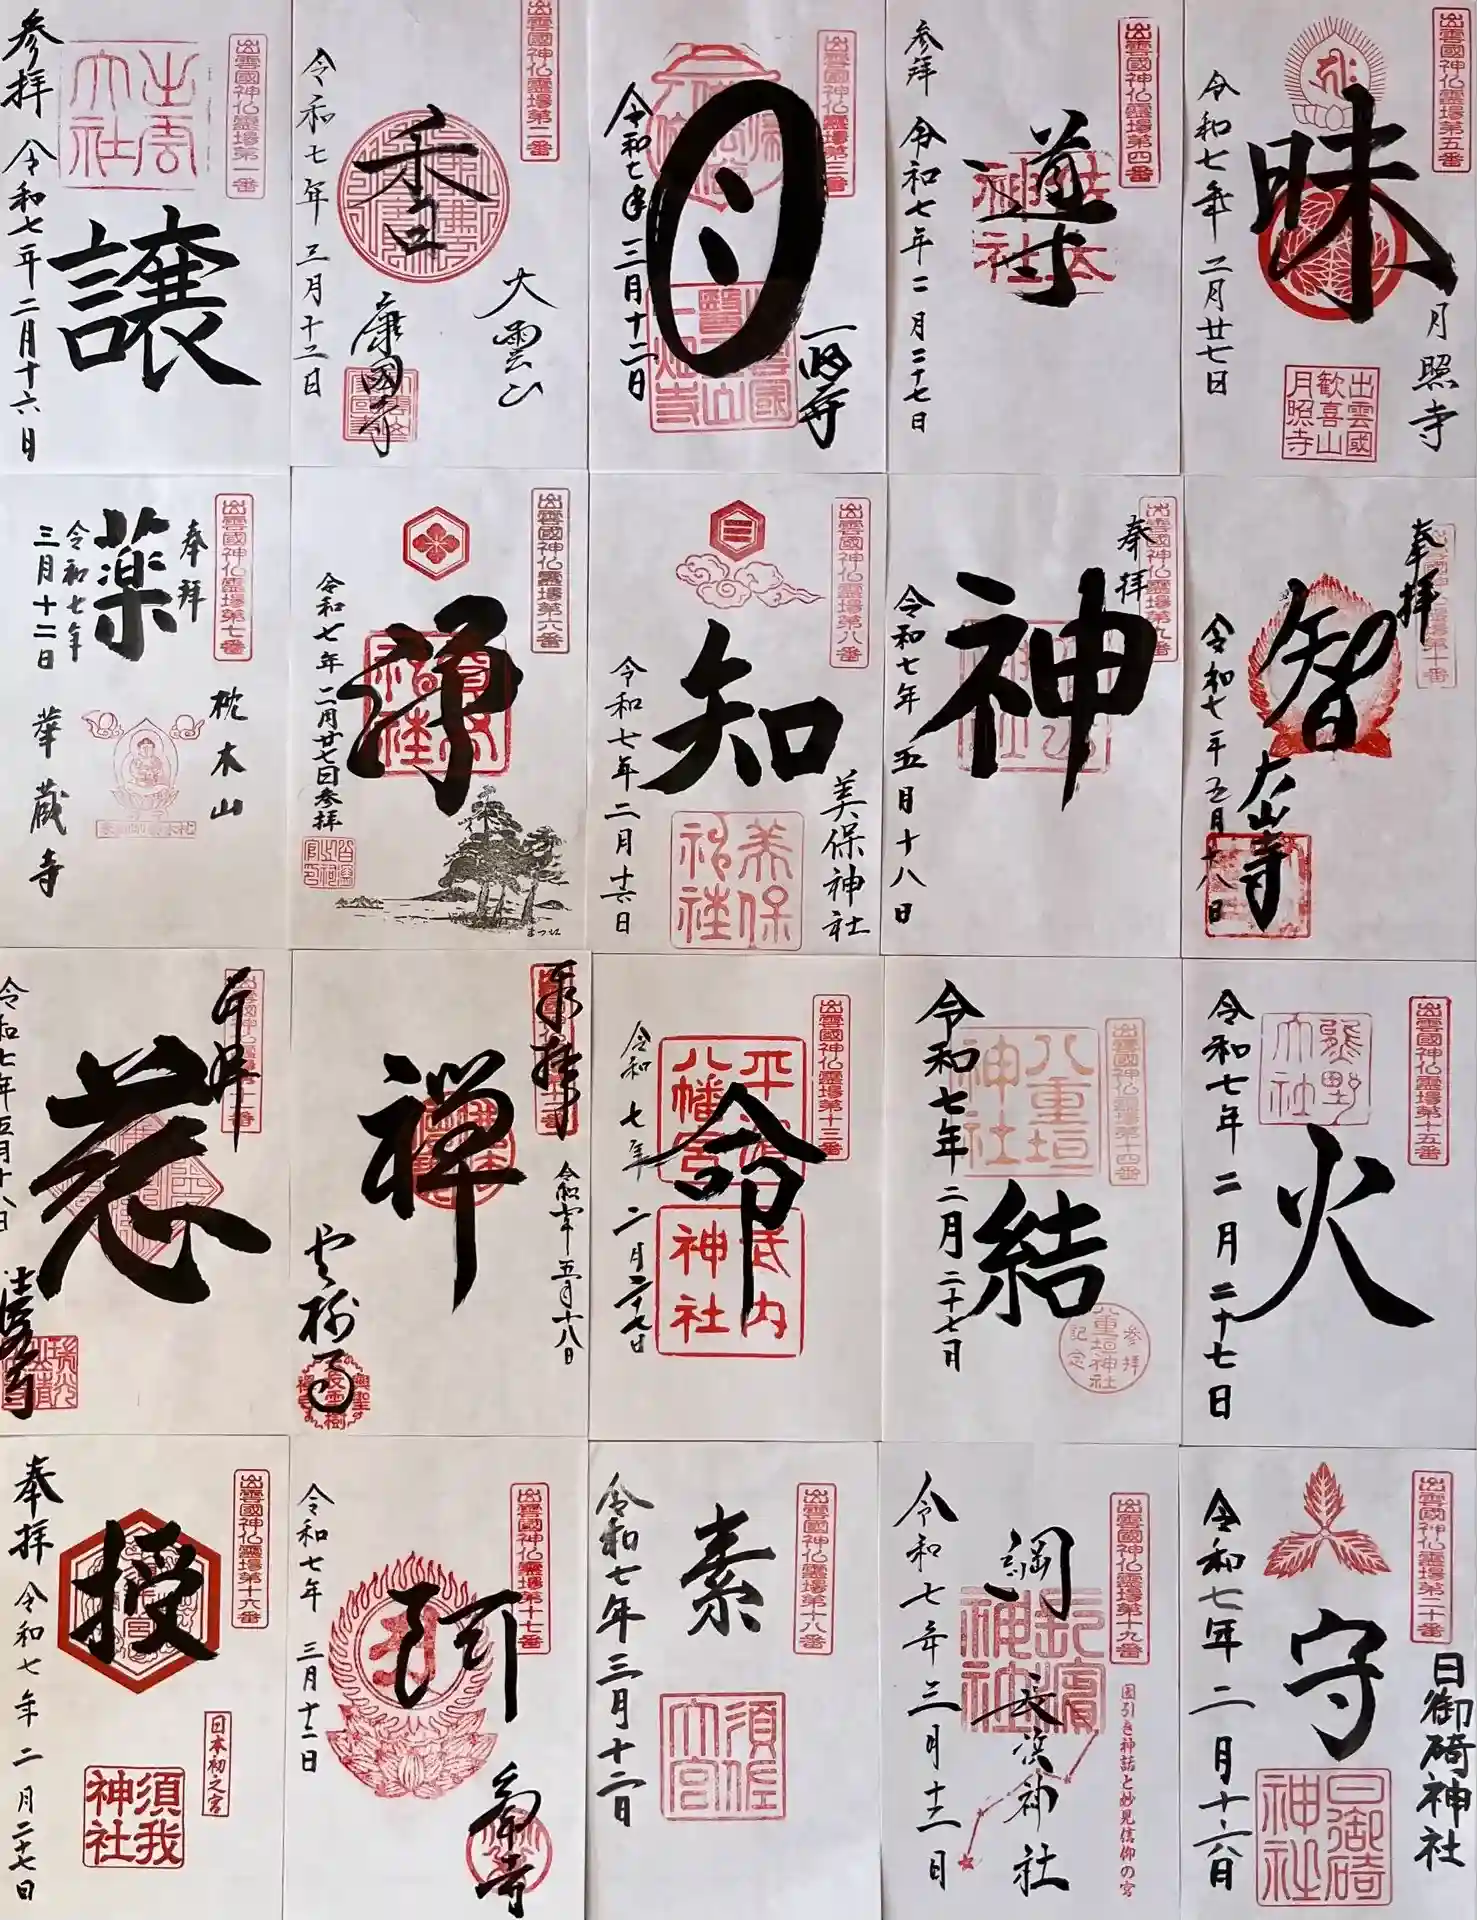 出雲國神仏霊場第一番
出雲大社
参拝
譲
令和七年二月十六日
出雲國神仏霊場第二番
大雲山
香
康國寺
令和七年三月十二日
出雲國神仏霊場第三番
一畑寺
令和七年三月十二日
出雲國神仏霊場第四番
参拝
導
令和七年二月二十七日
出雲國神仏霊場第五番
昧
月照寺
出雲國
歓喜山
月照寺
令和七年二月廿七日
出雲國神仏霊場第七番
奉拝
薬
枕木山
華蔵寺
令和七年
三月十二日
出雲國神仏霊場第六番
令和七年二月廿七日参拝
出雲國神仏霊場第八番
知
美保神社
美保
神社
令和七年二月十六日
出雲國神仏霊場第九番
奉拝
神
令和七年五月十八日
出雲國神仏霊場第十番
奉拝
智
大山寺
令和七年五月十八日
慈
令和七年五月十八日
奉拝
禅
雲樹寺
令和七年五月十八日
出雲國神仏霊場第十三番
平濱
八幡宮
武内
神社
命
令和七年二月二十七日
出雲國神仏霊場第十四番
八重垣
神社
結
参拝
八重垣神社
記念
令和七年二月二十七日
出雲國神仏霊場第十五番
熊野
大社
火
令和七年二月二十七日
出雲國神仏霊場第十六番
奉拝
授
日本初之宮
須我
神社
令和七年二月二十七日
出雲國神仏霊場第十七番
阿
令和七年三月十二日
出雲國神仏霊場第十八番
素
須佐
大宮
令和七年三月十二日
出雲國神仏霊場第十九番
綱
長浜神社
長濱
神社
国引き神話と妙見信仰の宮
令和七年三月十二日
出雲國神仏霊場第二十番
守
日御碕神社
日御碕
神社
令和七年二月十六日